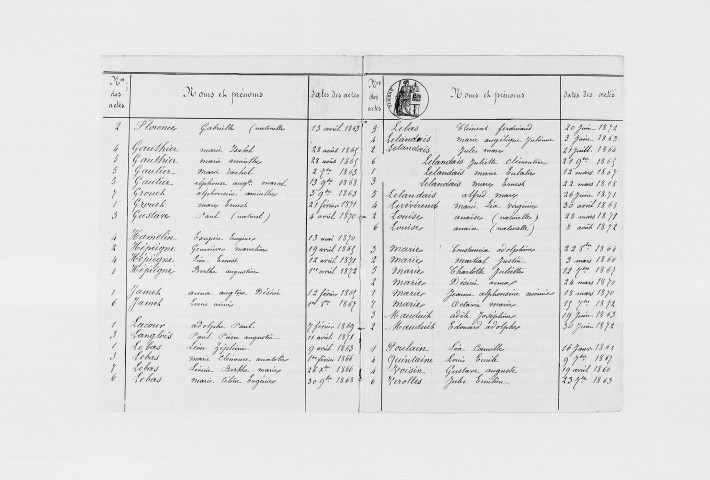 Nos des actes Noms et prénoms dates des actes
2 Florence Gabrielle (naturelle) 13 avril 1863
4 Gauthier marie Isabel 28 août 1865
3 Gauthier marie aminthe 28 août 1865
5 Gautier marie rachel 2 7bre 1863
5 Gautier alphonse aug. marcel 13 9bre 1868
7 Grouch alphonsine aminthe 5 9bre 1863
1 Grouch marie Ernest 21 février 1871
3 Gustave Paul (naturel) 4 avril 1870
4 Hamelin Eugène 13 mai 1870
2 Hépiègne Geneviève marceline 19 avril 1865
4 Hépiègne Léon Ernest 12 avril 1871
1 Hépiègne Berthe augustine 1er avril 1872
1 Jamet anna angline Désirée 12 février 1865
6 Jamet Louis aimé 1867
1 Lacour adolphe Paul 7 février 1869
3 Langlois Paul Pierre augustin 11 avril 1871
1 Lebas Léon Zéphirin 9 avril 1863
3 Lebas marie Clémence anatolie 1er février 1866
7 Lebas Léonie Berthe marie 26 Xbre 1866
6 Lebas marie Celine Eugénie 30 9bre 1868
Nos des actes Noms et prénoms dates des actes
3 Lebas Clément ferdinand 20 juin 1872
4 Lelandais marie angélique Julienne 3 juin 1863
2 Lelandais Jules marie 21 juill. 1866
6 Lelandais Juliette Clémentine 21 9bre 1865
1 Lelandais marie Eulalie 12 mars 1867
3 Lelandais marie Ernest 22 mai 1868
5 Lelandais alfred marie 26 juin 1871
4 Lerévérend marie Léa virginie 30 avril 1868
2 Louise anaïse (naturelle) 28 mars 1871
6 Louise anaïse (naturelle) 8 août 1872
3 Marie Constancia adolphine 22 1864
2 Marie martial Justin 3 mars 1866
5 Marie Charlotte Juliette 12 7bre 1867
2 Marie Désiré aimé 24 mars 1870
1 Marie Jeanne alphonsine 18 mars 1870
7 Marie Octavie marie 15 7bre 1872
3 Mauduit adèle Joséphine 19 juin 1863
2 Mauduit Edouard adolphe 30 juin 1872
1 Poulain Léa Camille 16 1868
4 Quintaine Louis Emile 9 7bre 1867
4 Voisin Gustave auguste 19 avril 1866
6 Verolles Jules Emilien 23 7bre 1863